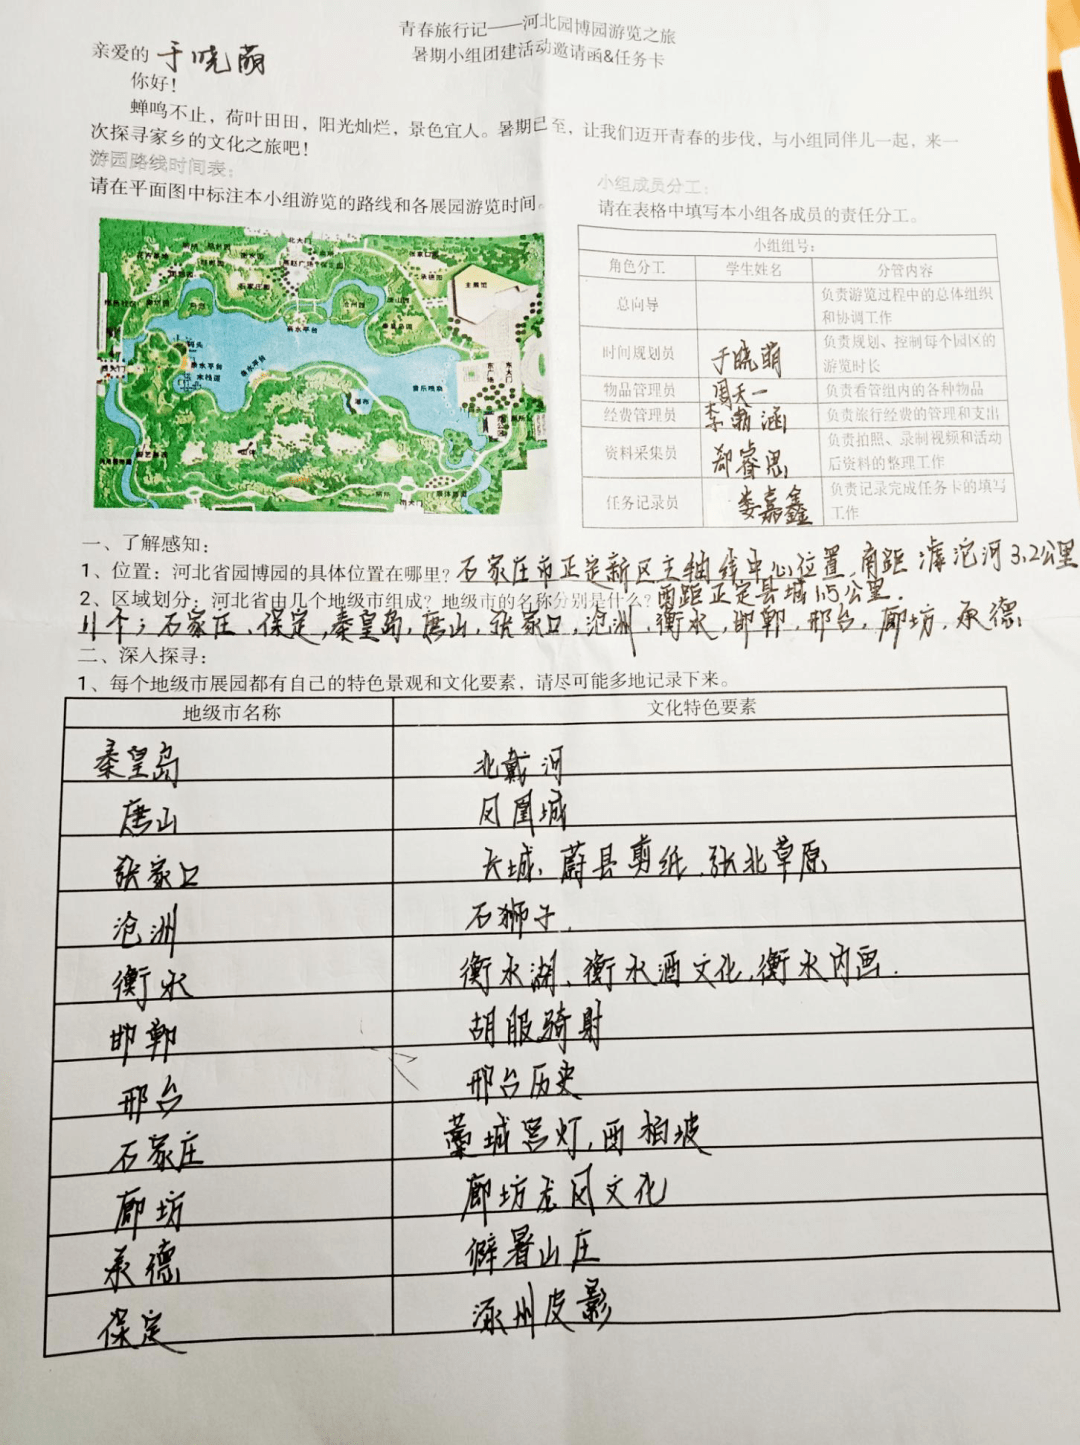 青春旅行记——河北园博园游览之旅
暑期小组团建活动邀请函&任务卡
亲爱的 于晓萌
你好！
蝉鸣不止，荷叶田田，阳光灿烂，景色宜人。暑期已至，让我们迈开青春的步伐，与小组同伴儿一起，来一
次探寻家乡的文化之旅吧！
游园路线时间表：
请在平面图中标注本小组游览的路线和各展园游览时间。
北大门
主展馆
亲水平台
码头
亲水平台
木栈道
亲水平台
瀑布
音乐喷泉
东广场
东大门
西大门
南大门
小组成员分工：
请在表格中填写本小组各成员的责任分工。
小组组号：
角色分工 学生姓名 分管内容
总向导 负责游览过程中的总体组织
和协调工作
时间规划员 于晓萌 负责规划、控制每个园区的
游览时长
物品管理员 周天一 负责看管组内的各种物品
经费管理员 李勃涵 负责旅行经费的管理和支出
资料采集员 郑睿思 负责拍照、录制视频和活动
后资料的整理工作
任务记录员 娄嘉鑫 负责记录完成任务卡的填写
工作
一、了解感知：
1、位置：河北省园博园的具体位置在哪里？石家庄市正定新区主轴线中心位置，南距滹沱河3.2公里
西距正定县城1.5公里.
2、区域划分：河北省由几个地级市组成？地级市的名称分别是什么？
11个；石家庄，保定，秦皇岛，唐山，张家口，沧洲，衡水，邯郸，邢台，廊坊，承德
二、深入探寻：
1、每个地级市展园都有自己的特色景观和文化要素，请尽可能多地记录下来。
地级市名称 文化特色要素
秦皇岛 北戴河
唐山 凤凰城
张家口 长城、蔚县剪纸、张北草原
沧洲 石狮子.
衡水 衡水湖、衡水酒文化，衡水内画.
邯郸 胡服骑射
邢台 邢台历史
石家庄 藁城宫灯，西柏坡
廊坊 廊坊龙凤文化
承德 僻暑山庄
保定 涿州皮影